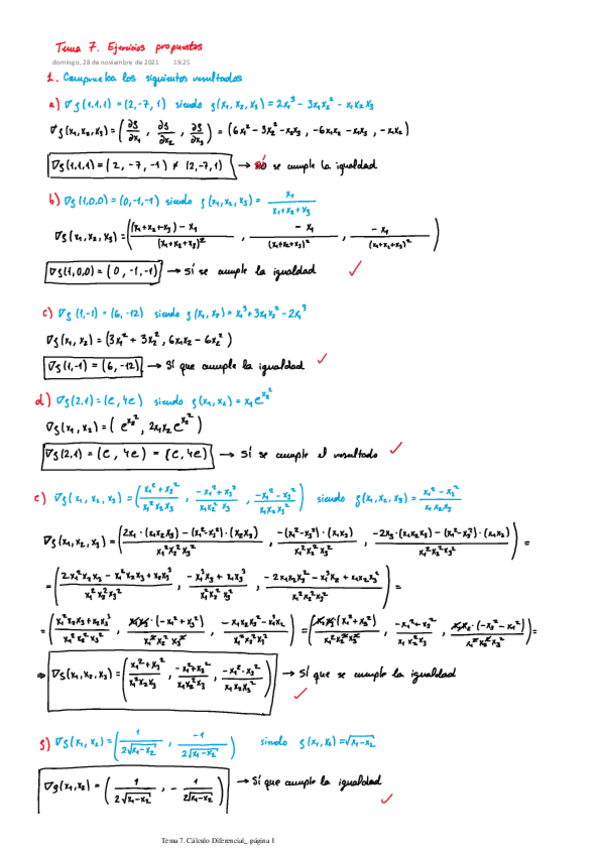 Tema 7. Ejercicios propuestos
domingo, 28 de noviembre de 2021 19:25
1. Comprueba los siguientes resultados
a) ∇f(1,1,1) = (2,-7,1) siendo f(x₁,x₂,x₃) = 2x₁³ - 3x₁x₂² - x₁x₂x₃
∇f(x₁,x₂,x₃) = (∂f/∂x₁, ∂f/∂x₂, ∂f/∂x₃) = (6x₁² - 3x₂² - x₂x₃, -6x₁x₂ - x₁x₃, -x₁x₂)
∇f(1,1,1) = (2, -7, -1) ≠ (2,-7,1) → no se cumple la igualdad
b) ∇f(1,0,0) = (0,-1,-1) siendo f(x₁,x₂,x₃) = x₁/(x₁+x₂+x₃)
∇f(x₁,x₂,x₃) = (((x₁+x₂+x₃) - x₁)/(x₁+x₂+x₃)², -x₁/(x₁+x₂+x₃)², -x₁/(x₁+x₂+x₃)²)
∇f(1,0,0) = (0, -1, -1) → sí se cumple la igualdad ✓
c) ∇f(1,-1) = (6,-12) siendo f(x₁,x₂) = x₁³ + 3x₁x₂² - 2x₂³
∇f(x₁,x₂) = (3x₁² + 3x₂², 6x₁x₂ - 6x₂²)
∇f(1,-1) = (6,-12) → Sí que cumple la igualdad ✓
d) ∇f(2,1) = (e, 4e) siendo f(x₁,x₂) = x₁e^(x₂²)
∇f(x₁,x₂) = (e^(x₂²), 2x₁x₂e^(x₂²))
∇f(2,1) = (e, 4e) = (e, 4e) → Sí se cumple el resultado ✓
e) ∇f(x₁,x₂,x₃) = ((x₁²+x₃²)/(x₁²x₂x₃), (-x₁²+x₃²)/(x₁x₂²x₃), (-x₁²-x₃²)/(x₁x₂x₃²)) siendo f(x₁,x₂,x₃) = (x₁²-x₃²)/(x₁x₂x₃)
∇f(x₁,x₂,x₃) = ((2x₁·(x₁x₂x₃) - (x₁²-x₃²)·(x₂x₃))/(x₁²x₂²x₃²), (-(x₁²-x₃²)·(x₁x₃))/(x₁²x₂²x₃²), (-2x₃·(x₁x₂x₃) - (x₁²-x₃²)·(x₁x₂))/(x₁²x₂²x₃²)) =
= ((2x₁²x₂x₃ - x₁²x₂x₃ + x₂x₃³)/(x₁²x₂²x₃²), (-x₁³x₃ + x₁x₃³)/(x₁²x₂²x₃²), (-2x₁x₂x₃² - x₁³x₂ + x₁x₂x₃²)/(x₁²x₂²x₃²)) =
⇒ ∇f(x₁,x₂,x₃) = ((x₁²+x₃²)/(x₁²x₂x₃), (-x₁²+x₃²)/(x₁x₂²x₃), (-x₁²-x₃²)/(x₁x₂x₃²)) → Sí que se cumple la igualdad ✓
f) ∇f(x₁,x₂) = (1/(2√(x₁-x₂)), -1/(2√(x₁-x₂))) siendo f(x₁,x₂) = √(x₁-x₂)
∇f(x₁,x₂) = (1/(2√(x₁-x₂)), -1/(2√(x₁-x₂))) → Sí que cumple la igualdad ✓
Tema 7. Cálculo Diferencial_ página 1